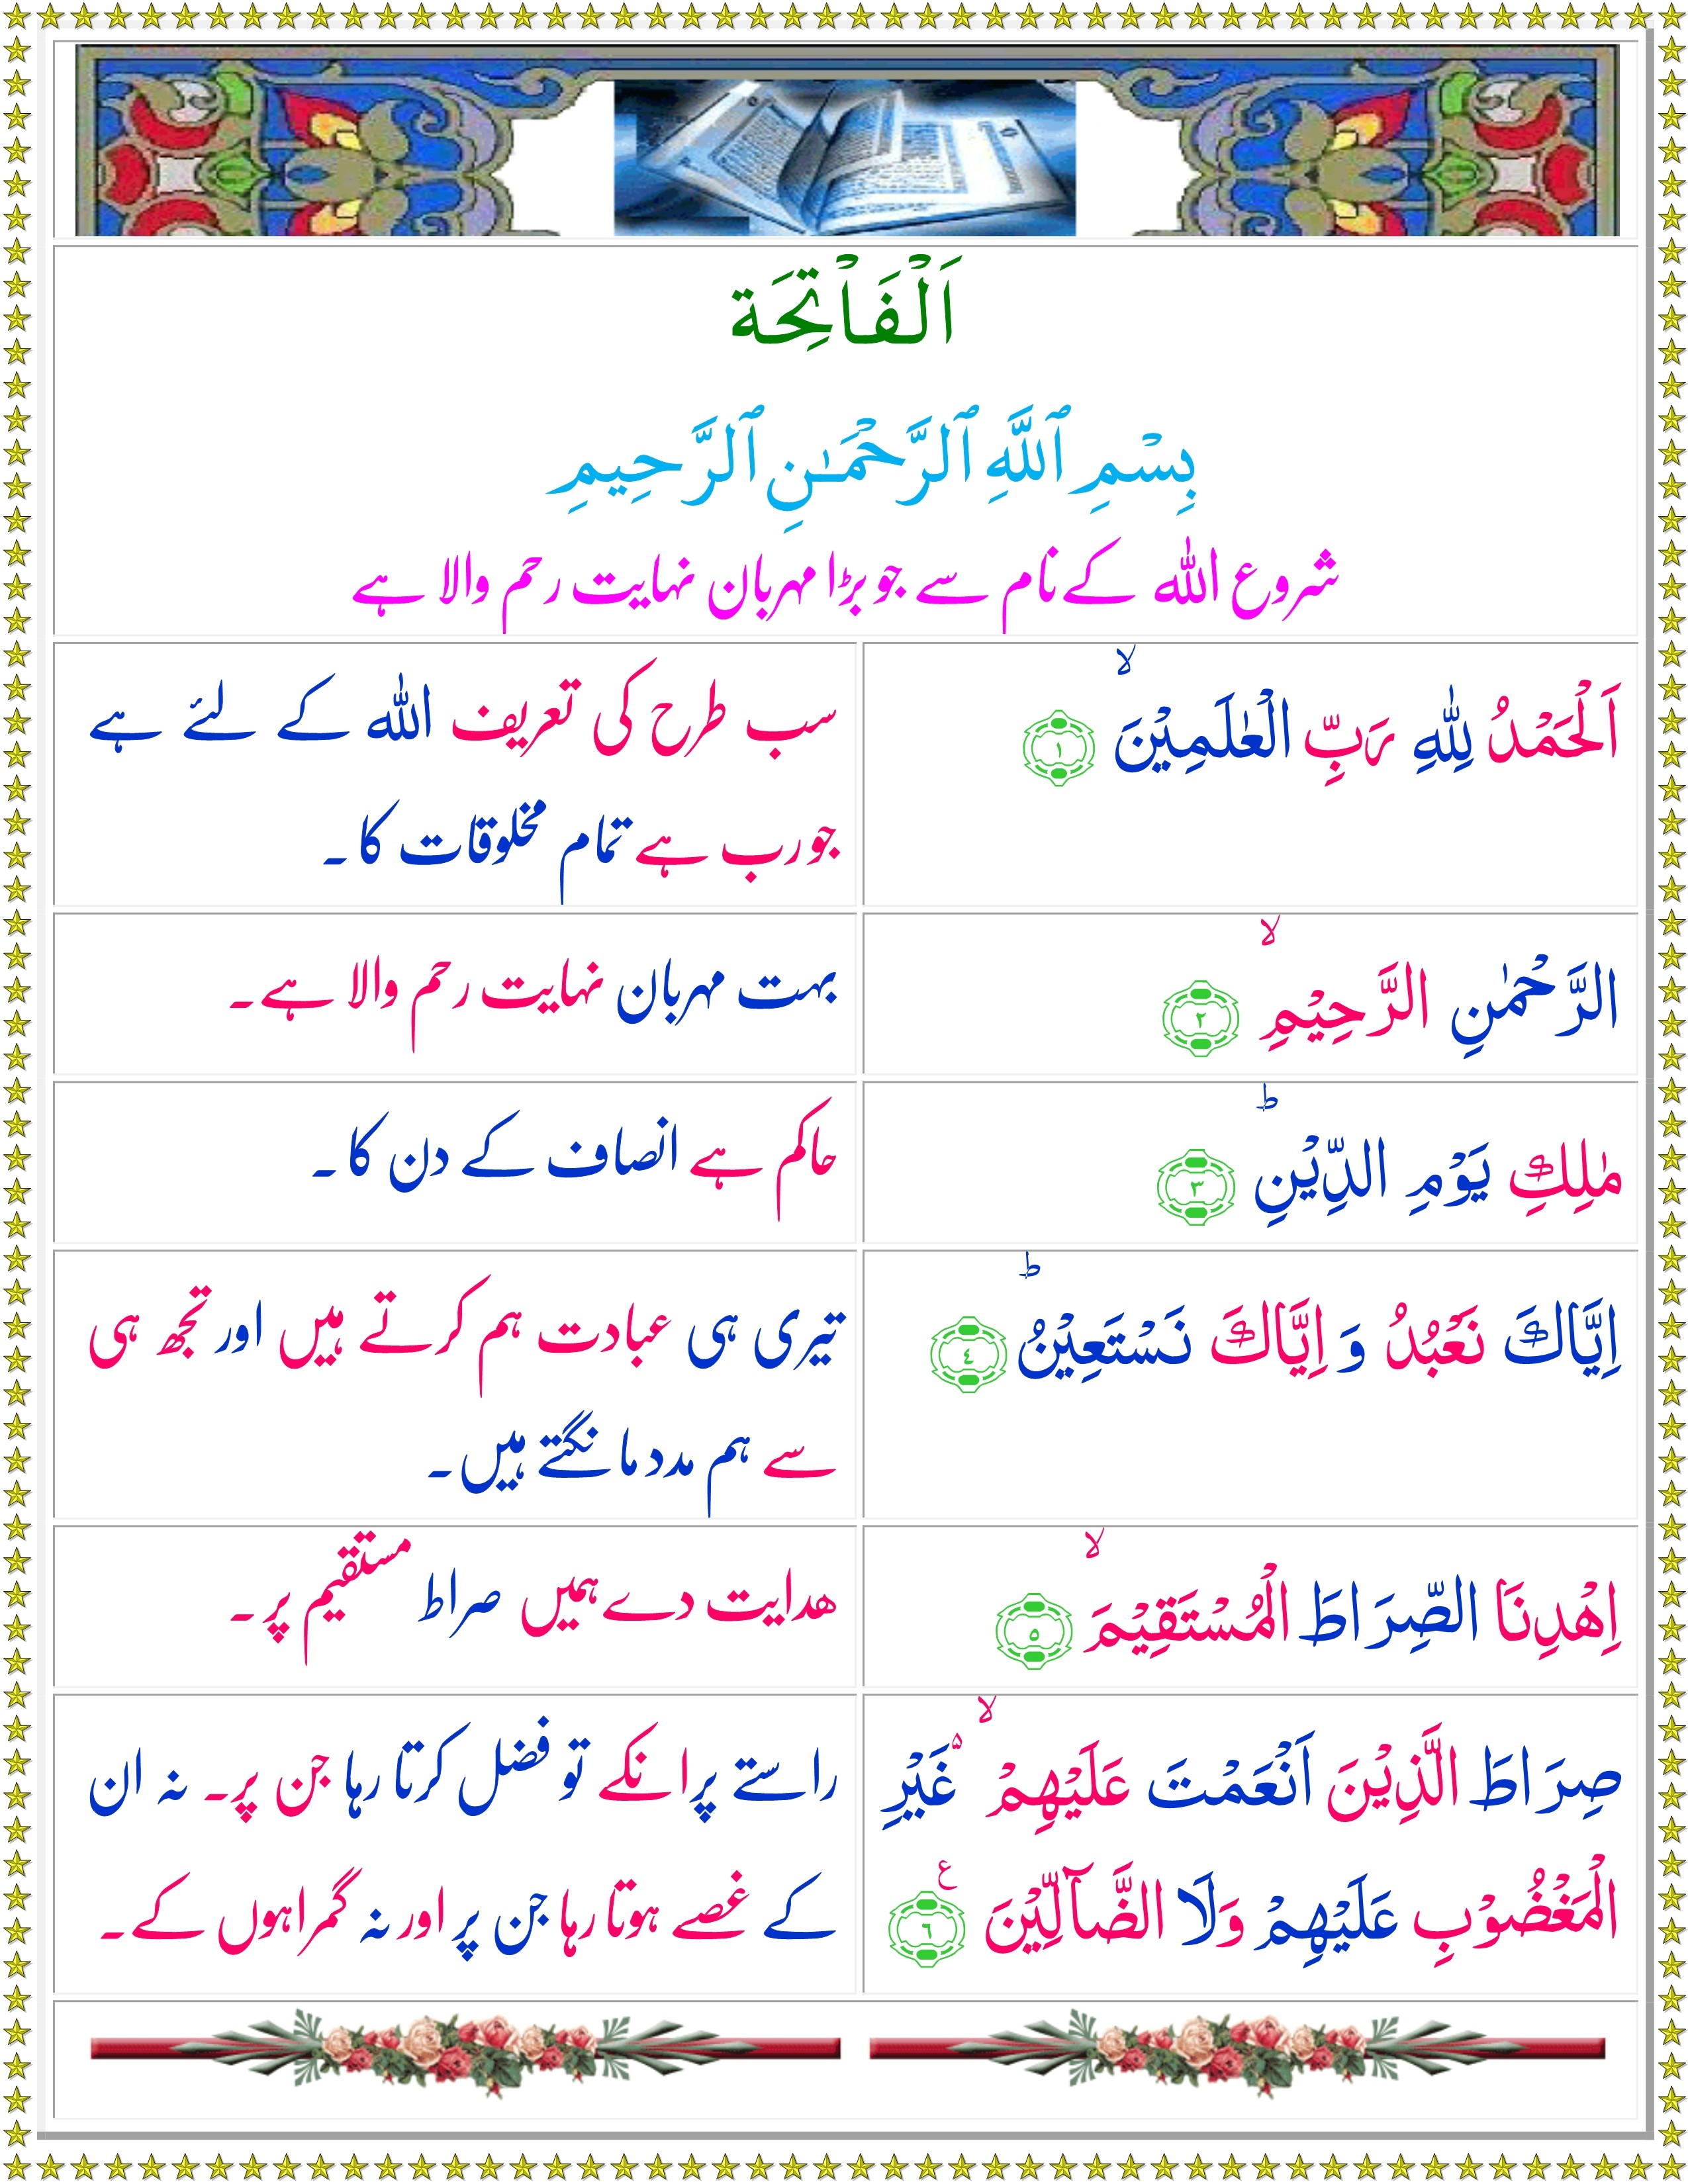 اَلْفَاْتِحَة
بِسْمِ ٱللَّهِ ٱلرَّحْمَـٰنِ ٱلرَّحِيمِ
شروع اللہ کے نام سے جو بڑا مہربان نہایت رحم والا ہے
اَلْحَمْدُ لِلّٰهِ رَبِّ الْعٰلَمِيْنَ ۙ ﴿١﴾
سب طرح کی تعریف اللہ کے لئے ہے
جو رب ہے تمام مخلوقات کا۔
الرَّحْمٰنِ الرَّحِيْمِ ۙ ﴿٢﴾
بہت مہربان نہایت رحم والا ہے۔
مٰلِكِ يَوْمِ الدِّيْنِ ؕ ﴿٣﴾
حاکم ہے انصاف کے دن کا۔
اِيَّاكَ نَعْبُدُ وَ اِيَّاكَ نَسْتَعِيْنُ ؕ ﴿٤﴾
تیری ہی عبادت ہم کرتے ہیں اور تجھ ہی
سے ہم مدد مانگتے ہیں۔
اِهْدِنَا الصِّرَاطَ الْمُسْتَقِيْمَ ۙ ﴿٥﴾
ھدایت دے ہمیں صراط مستقیم پر۔
صِرَاطَ الَّذِيْنَ اَنْعَمْتَ عَلَيْهِمْ ۙ۬ۦ غَيْرِ
الْمَغْضُوْبِ عَلَيْهِمْ وَلَا الضَّآلِّيْنَ ﴿٦﴾ ع
راستے پر انکے تو فضل کرتا رہا جن پر۔ نہ ان
کے غصے ہوتا رہا جن پر اور نہ گمراہوں کے۔